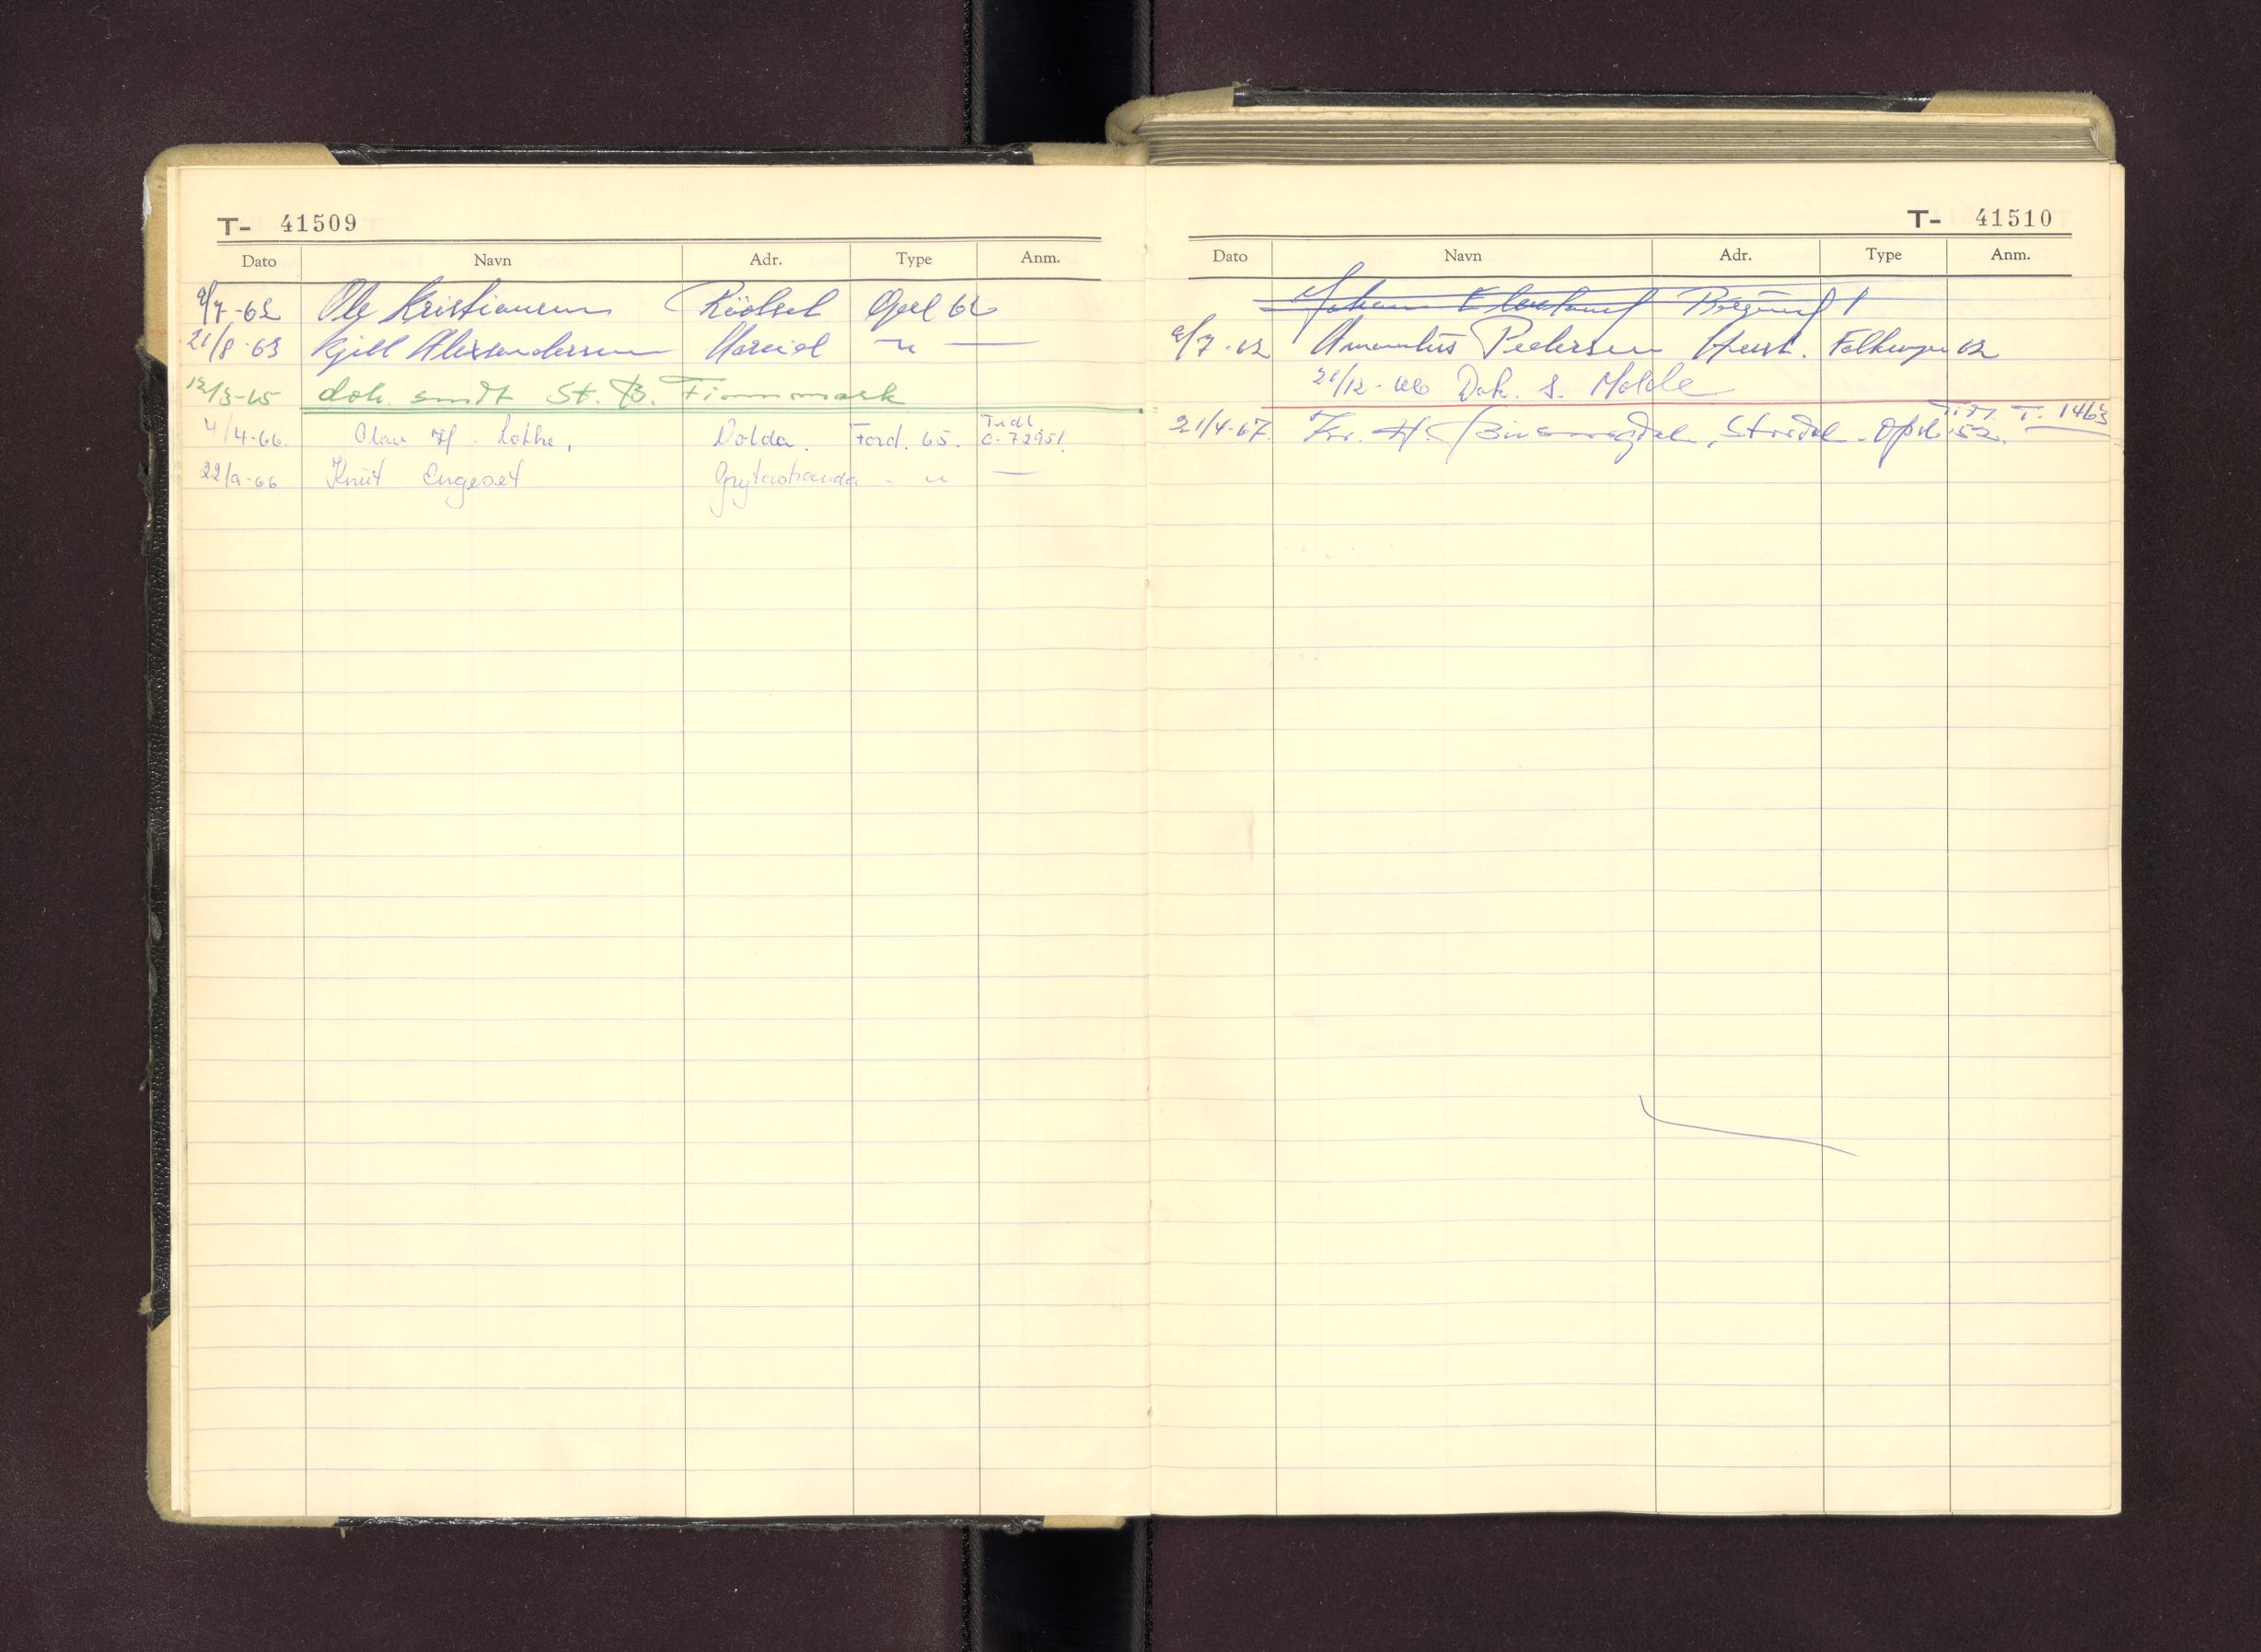 T- 41509
Dato Navn Adr. Type Anm.
9/7-62 Ole Kristiansen Rödset Opel 62
21/8-63 Kjell Alexandersen Hareid -"- —
12/3-65 dok. sendt St. B. Finnmark
4/4-66. Olav H. Lothe, Volda. Ford. 65. Tidl C-72951.
22/9-66 Knut Engeset Grytastranda - " - —
T- 41510
Dato Navn Adr. Type Anm.
Johan Borgund 1
9/7-62 Pedersen Folkevogn 62
21/12-66 Dok. s. Molde
21/4-67. Kr. H. Opel 52. T. 1463